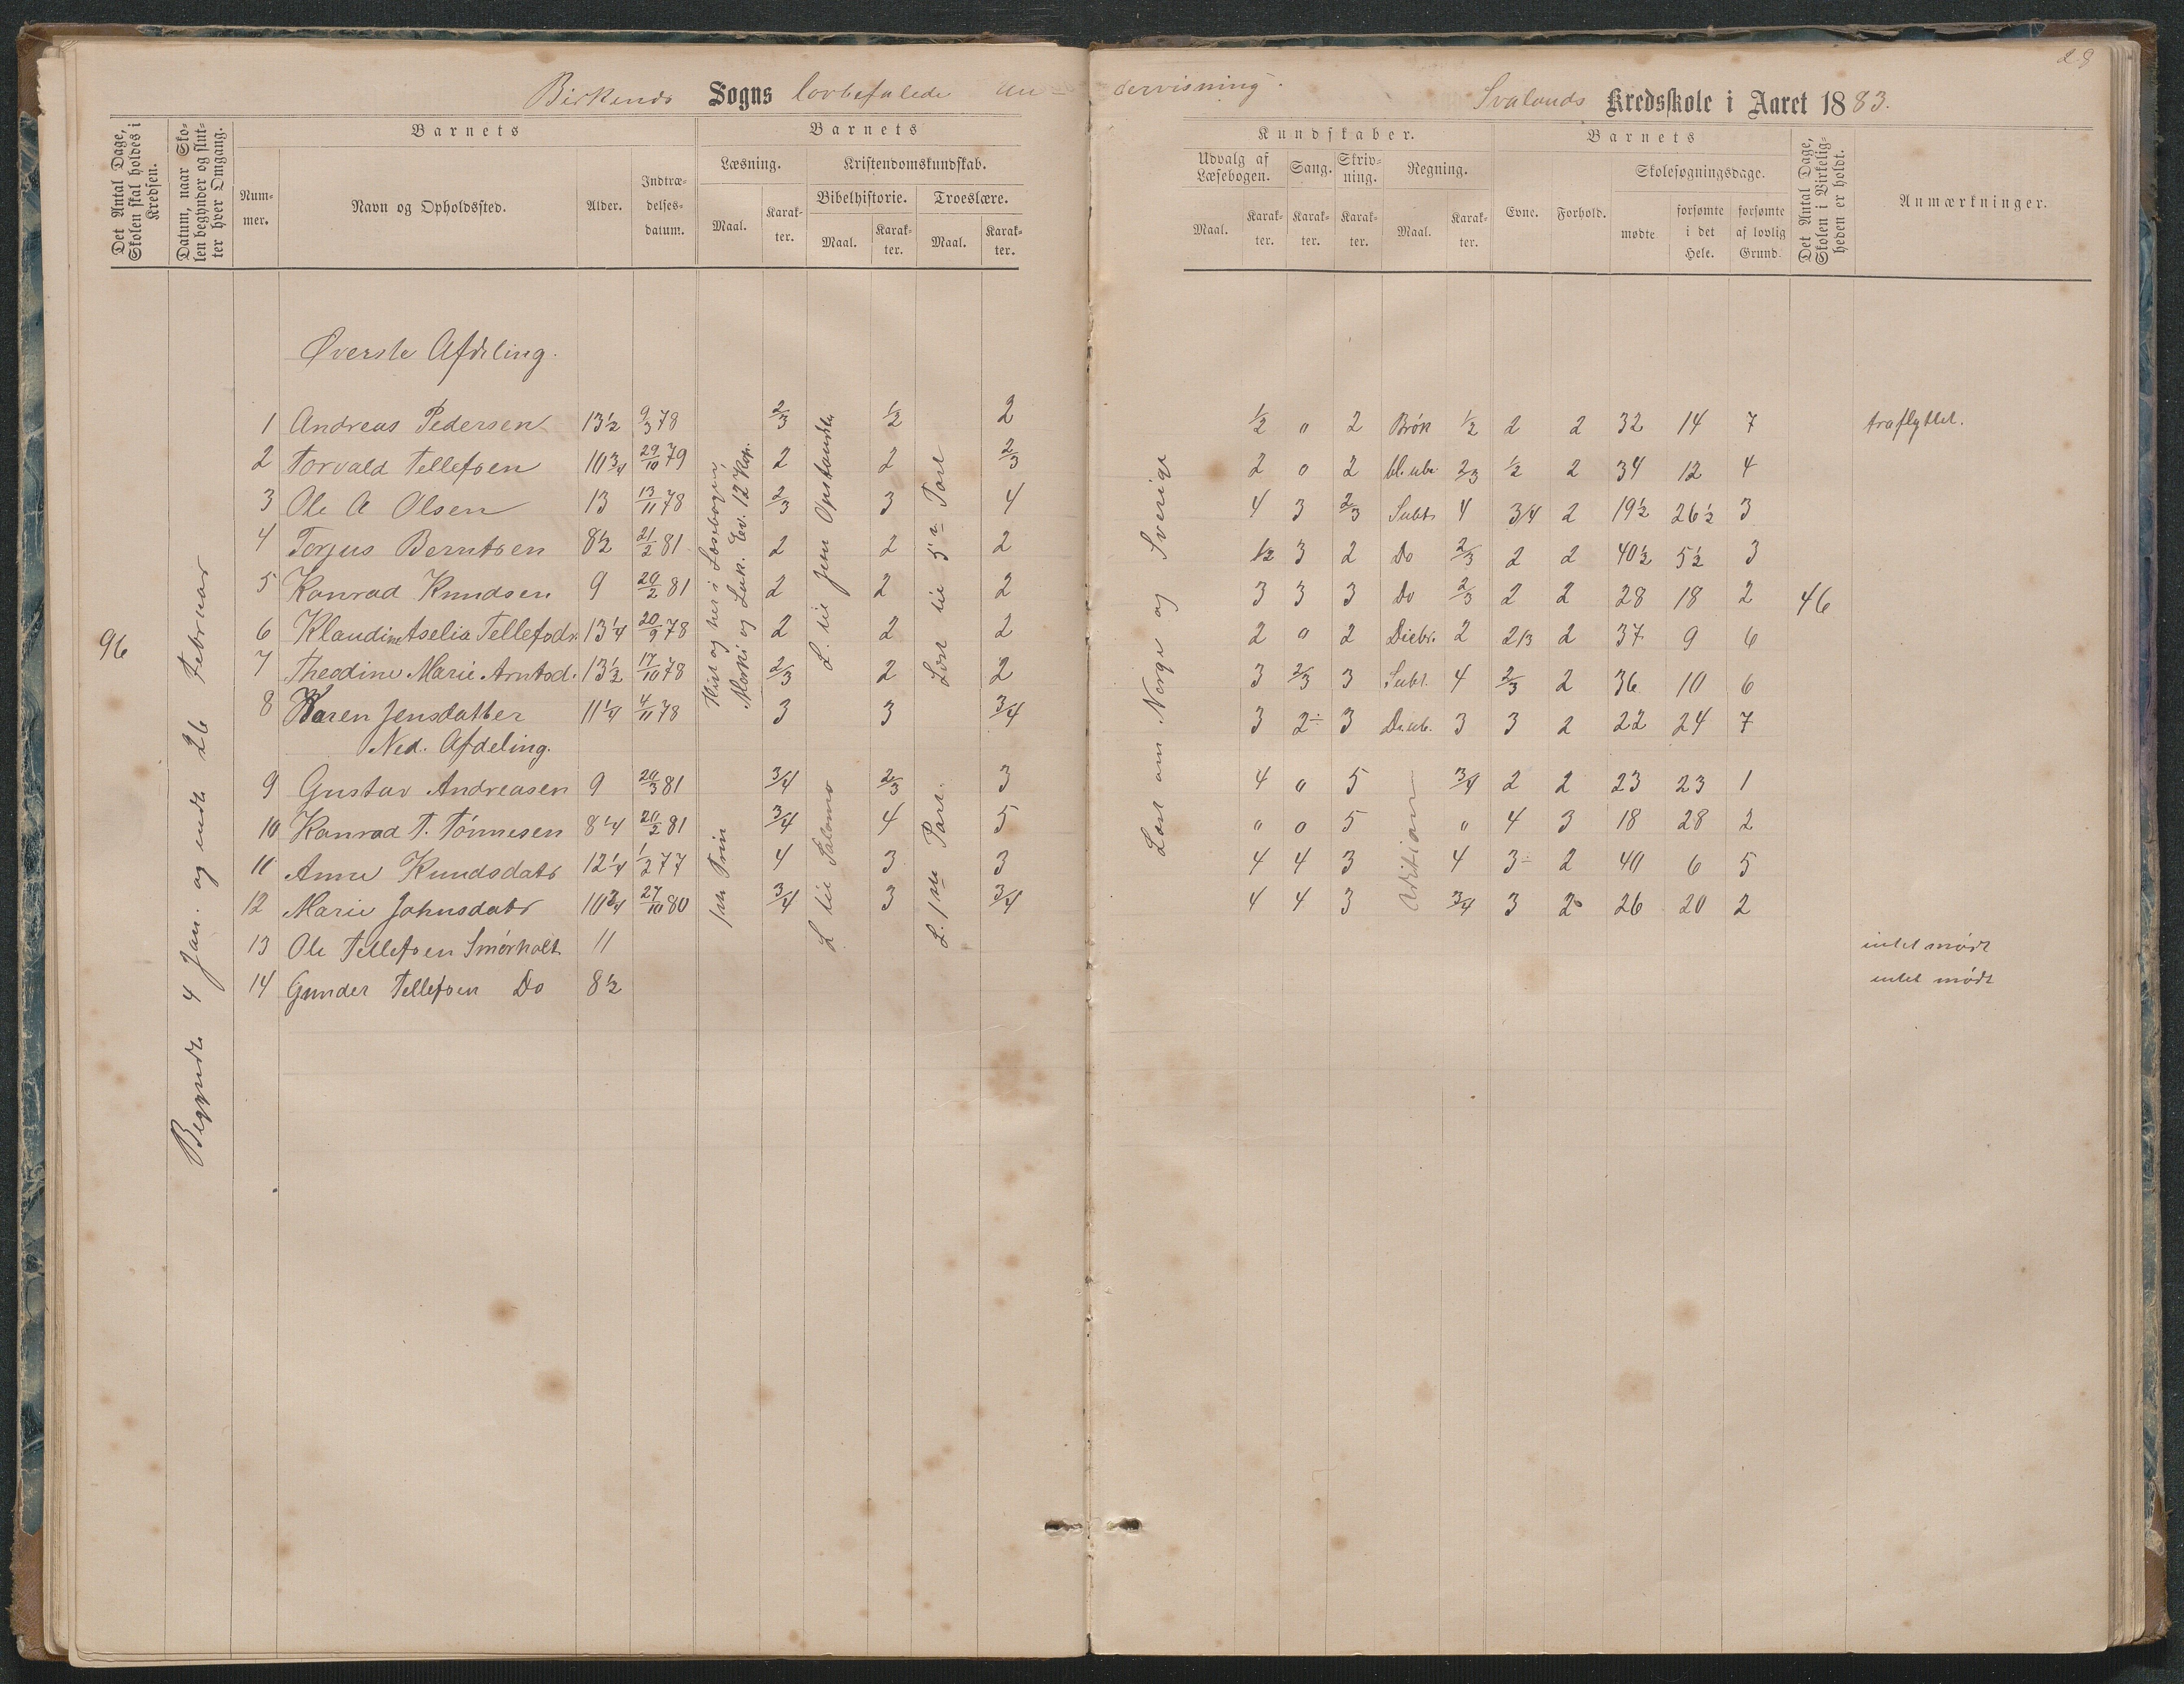 28
Birkends Sogns lovbefalede un dervisning. Svalands Kredsskole i Aaret 1883.
Det Antal Dage, Skolen skal holdes i Kredsen.
Datum, naar Skolen begynder og slutter hver Omgang.
Barnets
Nummer.
Navn og Opholdssted.
Alder.
Indtrædelsesdatum.
Barnets
Læsning.
Maal.
Karakter.
Kristendomskundskab.
Bibelhistorie.
Maal.
Karakter.
Troeslære.
Maal.
Karakter.
Kundskaber.
Udvalg af Læsebogen.
Maal.
Karakter.
Sang.
Karakter.
Skrivning.
Karakter.
Regning.
Maal.
Karakter.
Barnets
Evne.
Forhold.
Skolesøgningsdage.
mødte
forsømte i det Hele.
forsømte af lovlig Grund.
Det Antal Dage, Skolen i Virkeligheden er holdt.
Anmærkninger.
96
Begyndt 4 Jan. og endt 26 Februar
Øverste Afdeling.
1 Andreas Pedersen 13½ 9/3 78 2/3 ½ 2 ½ " 2 Brøk ½ 2 2 32 14 7 fraflyttet.
2 Torvald Tellefsen 10¾ 29/10 79 2 2 2/3 2 " 2 2/3 ½ 2 34 12 4
3 Ole A Olsen 13 13/11 78 2/3 3 4 4 3 2/3 Subt. 4 3/4 2 19½ 26½ 3
4 Torjus Berntsen 8½ 21/2 81 2 2 2 ½ 3 2 Do 2/3 2 2 40½ 5½ 3
5 Konrad Knudsen 9 20/2 81 2 2 2 3 3 3 Do 2/3 2 2 28 18 2 46
6 Klaudine Aselia Tellefsdr. 13¼ 20/9 78 2 2 2 2 " 2 2 2/3 2 37 9 6
7 Theodine Marie Arntsd. 13½ 17/10 78 2/3 2 2 3 2/3 3 Subt. 4 2/3 2 36 10 6
8 Karen Jensdatter 11¼ 4/11 78 3 3 3/4 3 2÷ 3 3 3 2 22 24 7
Ned. Afdeling.
9 Gustav Andreasen 9 20/3 81 3/4 2/3 3 4 " 5 3/4 2 2 23 23 1
10 Konrad T. Tønnesen 8¼ 20/2 81 3/4 4 5 " " 5 " 4 3 18 28 2
11 Anne Knudsdatr 12¼ 1/2 77 4 3 3 4 4 3 4 3÷ 2 40 6 5
12 Marie Johnsdatr 10¾ 27/10 80 3/4 3 3/4 4 4 3 3/4 3 2 26 20 2
13 Ole Tellefsen Smørholt 11 intet mødt
14 Gunder Tellefsen Do 8½ intet mødt
Hist og her i Læsebogen, og Luk. Ev. 12 Kap.
L. til Jesu Opstandelse
Læst til 5te Part
L. til Salomo
L. 1ste Part.
Læst om Norge og Sverige
Adition